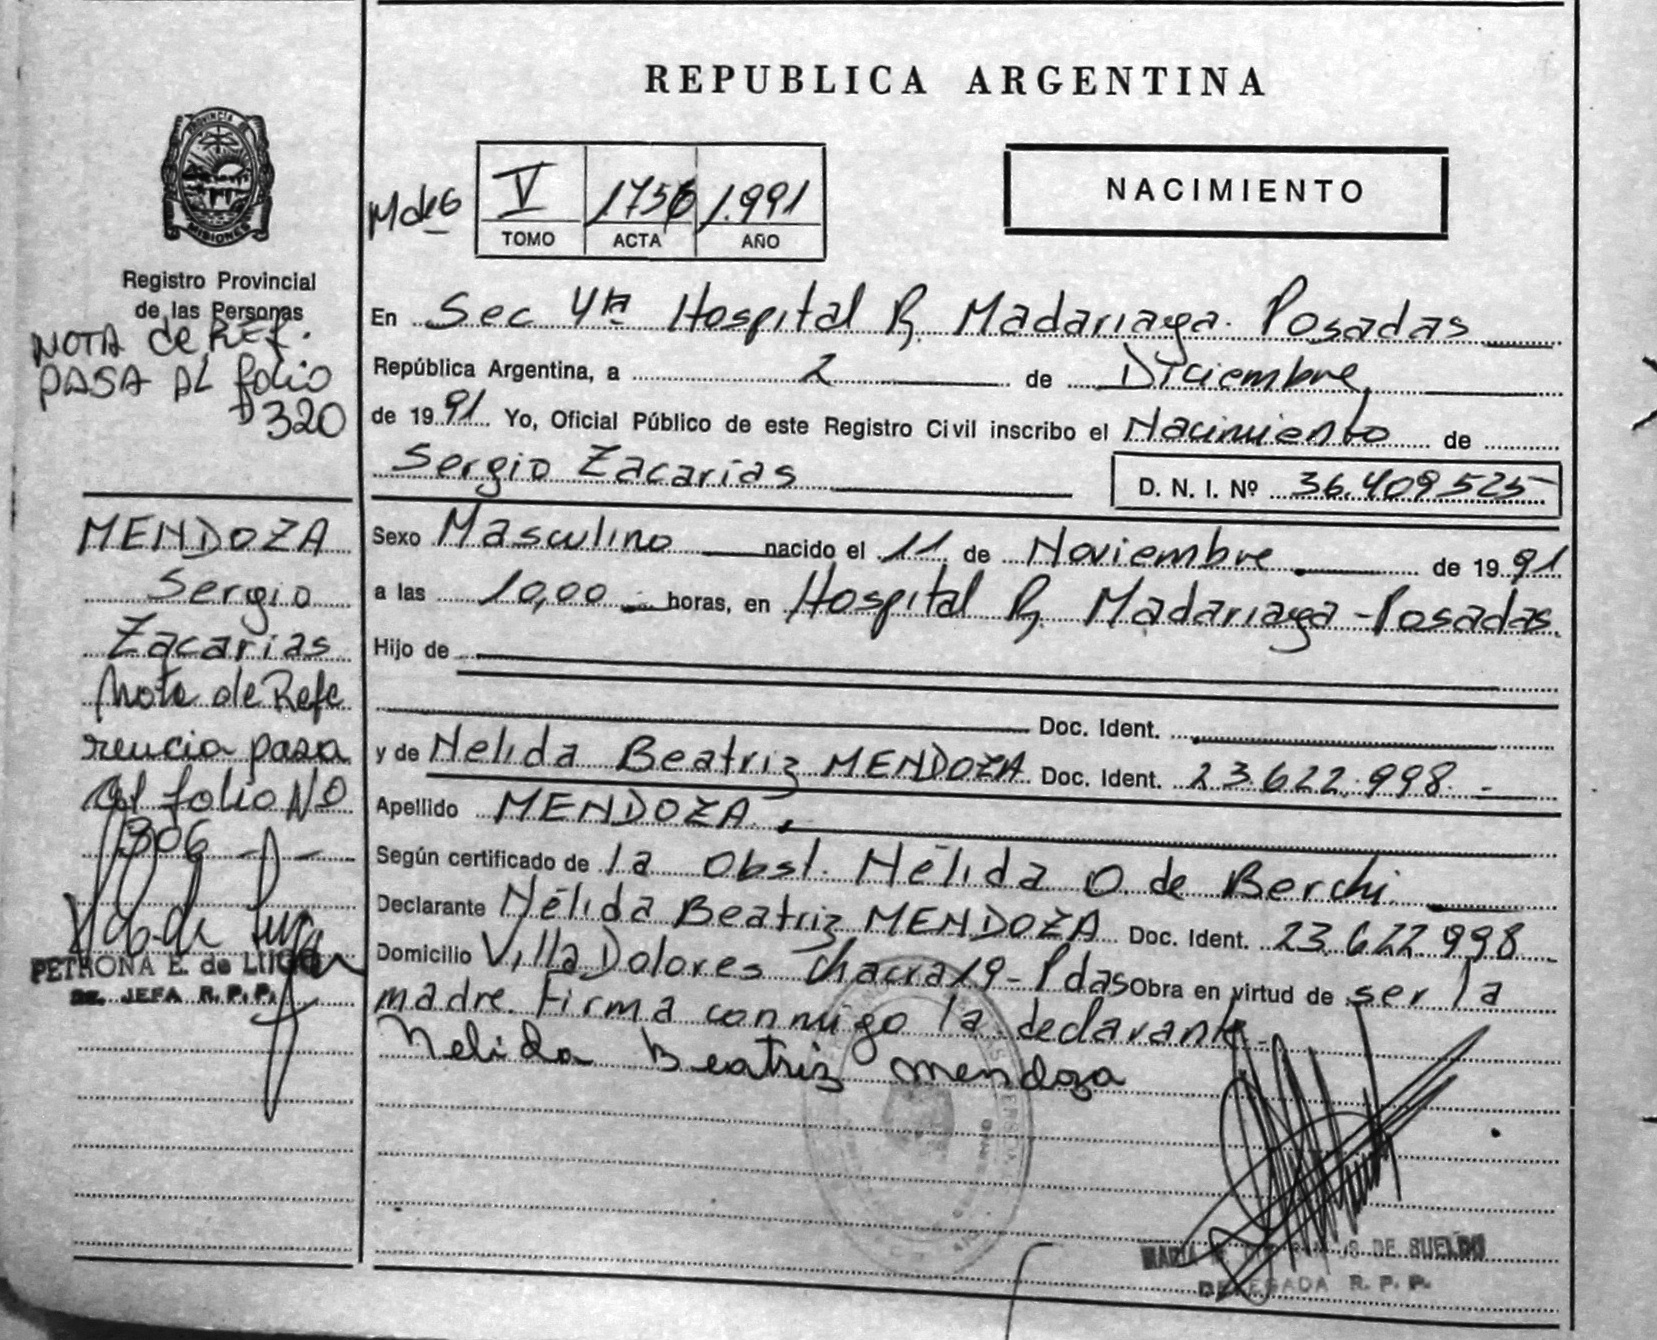 REPUBLICA ARGENTINA
PROVINCIA DE
MISIONES
Registro Provincial
de las Personas
NOTA de REF.
PASA AL folio
320
MdeG
V 1756 1.991
TOMO ACTA AÑO
NACIMIENTO
En Sec 4ta Hospital R. Madariaga. Posadas
República Argentina, a 2 de Diciembre,
de 1991. Yo, Oficial Público de este Registro Civil inscribo el Nacimiento de
Sergio Zacarías
D. N. I. Nº 36.409525
MENDOZA
Sergio
Zacarías
Nota de Refe
rencia pasa
al folio NO
306
PETRONA E. de LUGO
JEFA R. P. P.
Sexo Masculino nacido el 11 de Noviembre de 1991
a las 10,00 horas, en Hospital R. Madariaga - Posadas.
Hijo de
Doc. Ident.
y de Nelida Beatriz MENDOZA Doc. Ident. 23.622.998.-
Apellido MENDOZA.
Según certificado de la Obst. Nélida O. de Berchi.
Declarante Nélida Beatriz MENDOZA Doc. Ident. 23.622.998
Domicilio Villa Dolores Chacra 19 - Pdas Obra en virtud de ser la
madre. Firma conmigo la declarante.
Nelida Beatriz mendoza
DE SUELDO
DELEGADA R. P. P.